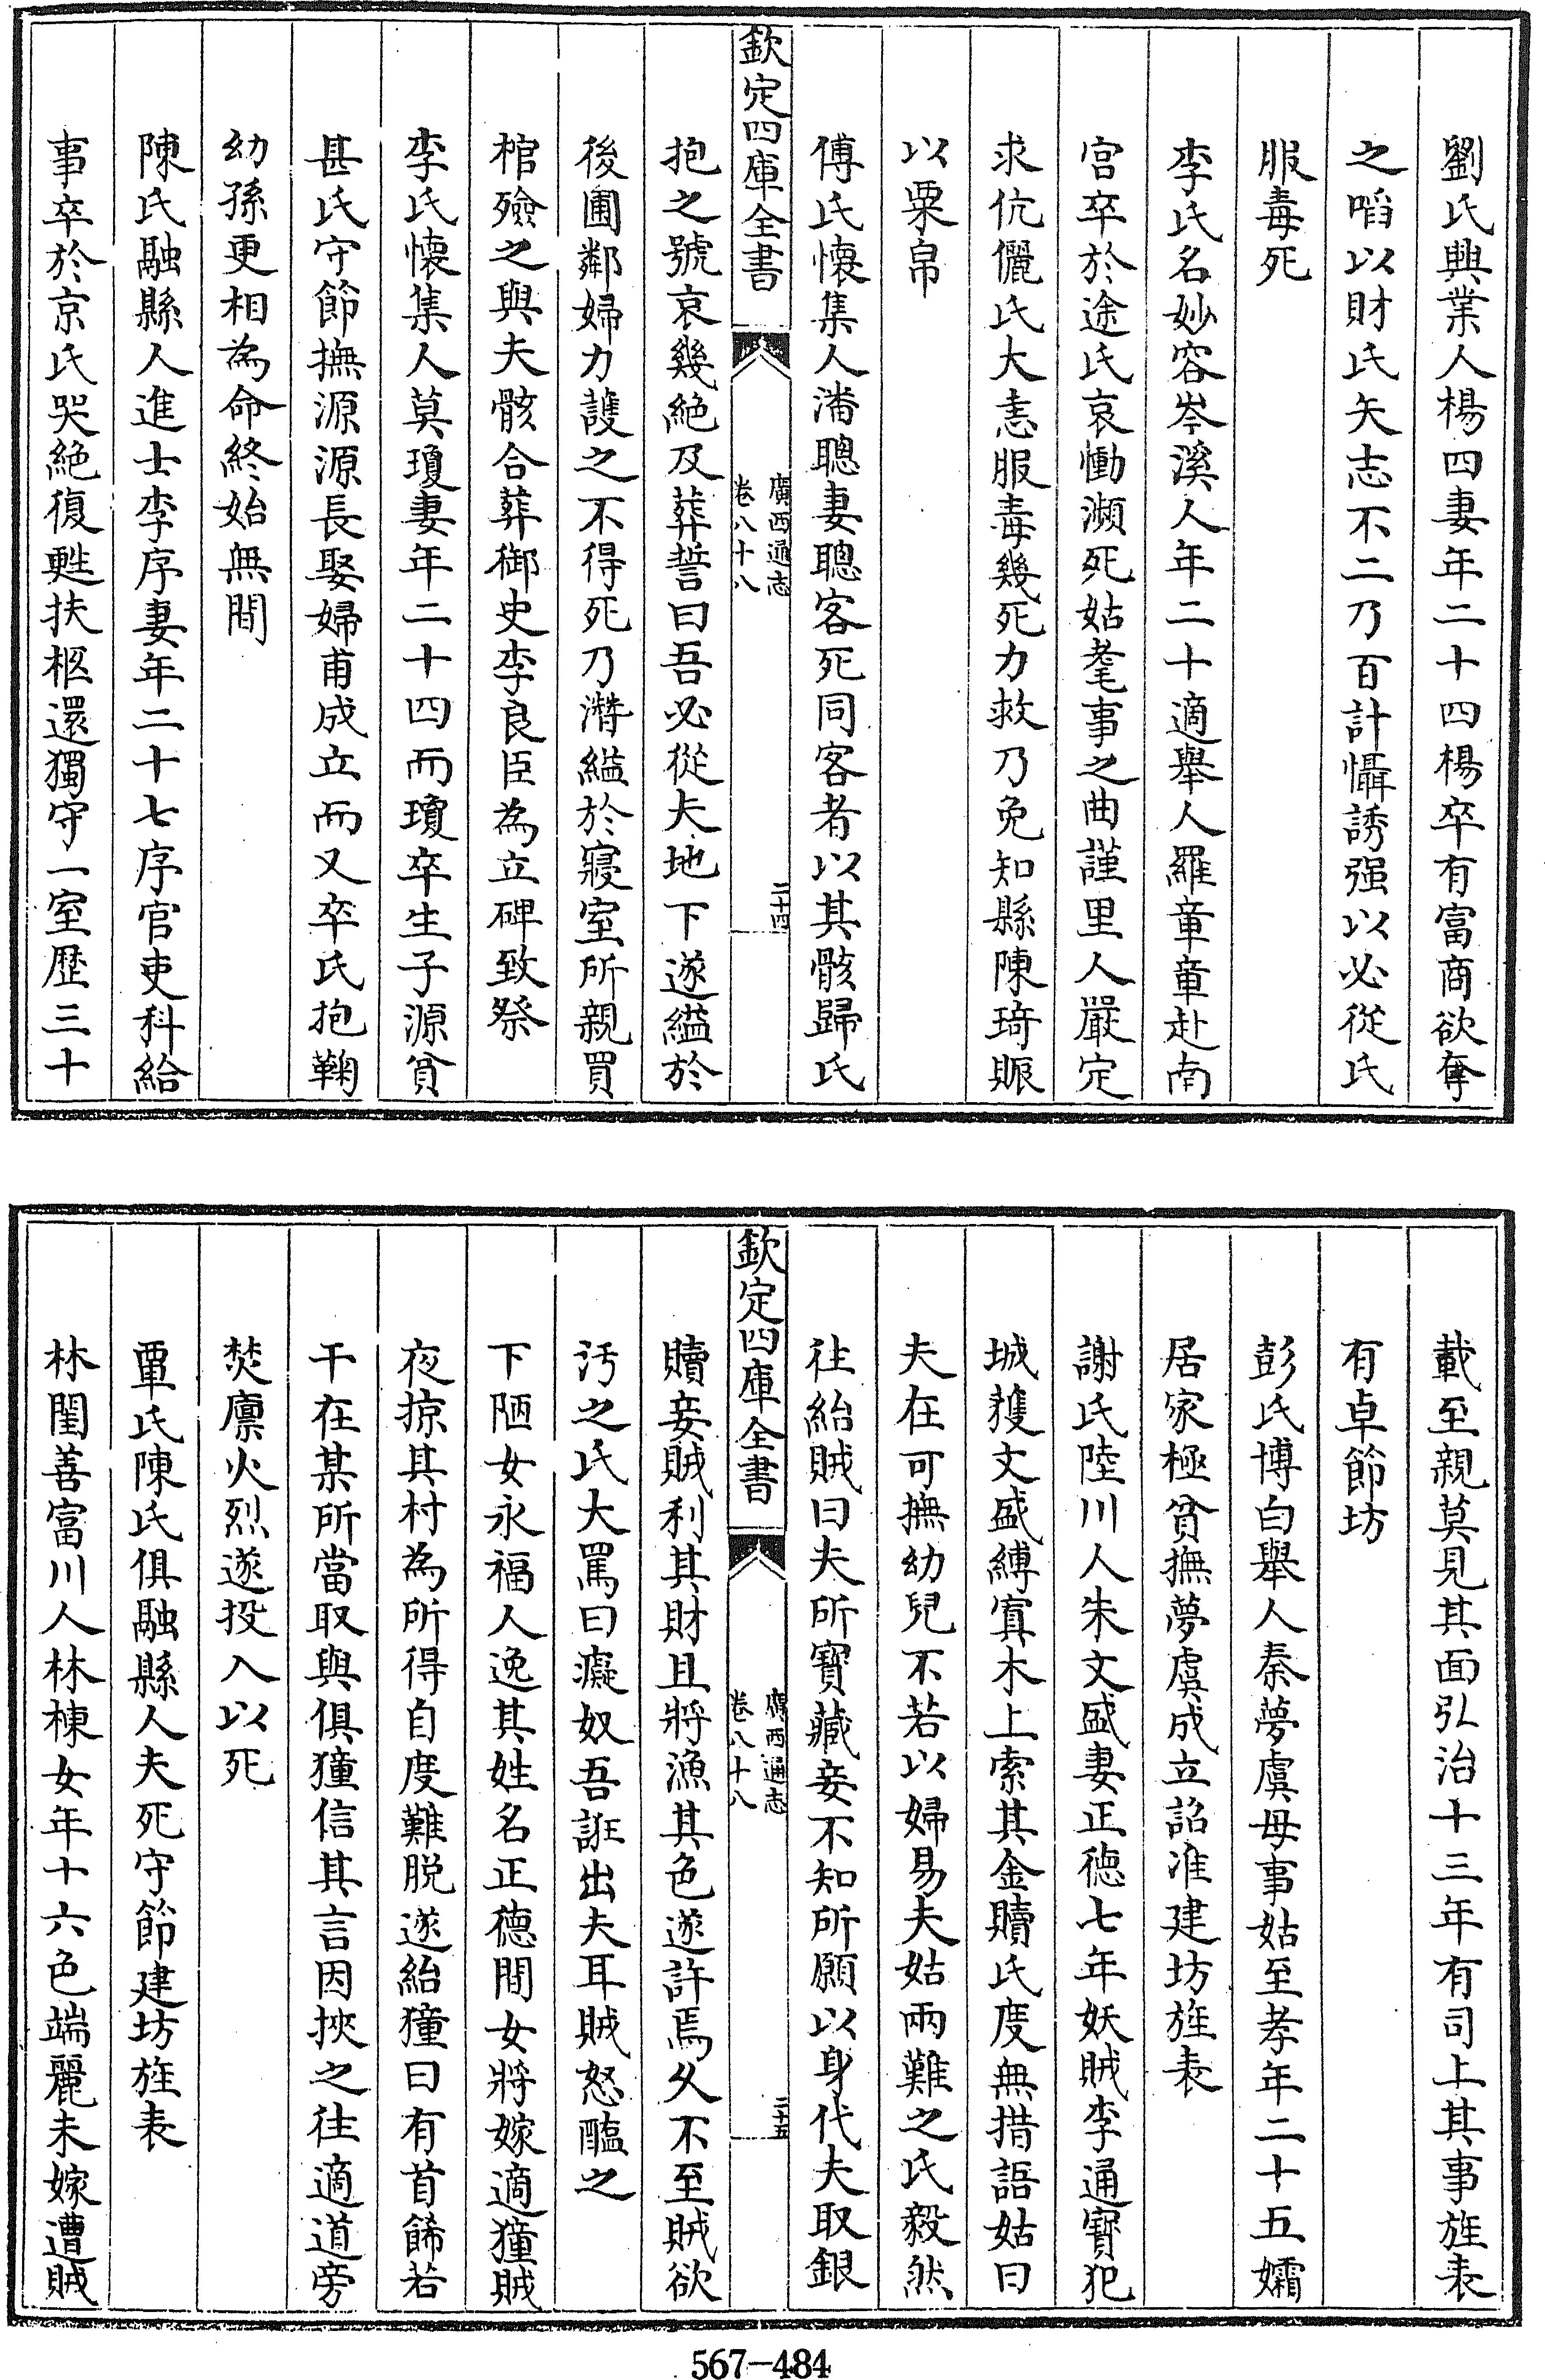 劉氏興業人楊四妻年二十四楊卒有富商欲奪
之啗以財氏矢志不二乃百計懾誘强以必從氏
服毒死
李氏名妙容岑溪人年二十適舉人羅章章赴南
宫卒於途氏哀慟瀕死姑耄事之曲謹里人嚴定
求伉儷氏大恚服毒幾死力救乃免知縣陳琦賑
以粟帛
傅氏懐集人潘聰妻聰客死同客者以其骸歸氏
欽定四庫全書
廣西通志
卷八十八
二十四
抱之號哀幾絶及葬誓曰吾必從夫地下遂縊於
後圃鄰婦力護之不得死乃潛縊於寢室所親買
棺殮之與夫骸合葬御史李良臣為立碑致祭
李氏懐集人莫瓊妻年二十四而瓊卒生子源貧
甚氏守節撫源源長娶婦甫成立而又卒氏抱鞠
幼孫更相為命終始無間
陳氏融縣人進士李序妻年二十七序官吏科給
事卒於京氏哭絶復甦扶柩還獨守一室歴三十
載至親莫見其面弘治十三年有司上其事旌表
有卓節坊
彭氏博白舉人秦夢虞母事姑至孝年二十五孀
居家極貧撫夢虞成立詔准建坊旌表
謝氏陸川人朱文盛妻正德七年妖賊李通寳犯
城獲文盛縛寘木上索其金贖氏度無措語姑曰
夫在可撫幼兒不若以婦易夫姑兩難之氏毅然
往紿賊曰夫所寳藏妾不知所願以身代夫取銀
欽定四庫全書
廣西通志
卷八十八
二十五
贖妾賊利其財且將漁其色遂許焉久不至賊欲
汚之氏大罵曰癡奴吾誑出夫耳賊怒醢之
下陋女永福人逸其姓名正德間女將嫁適獞賊
夜掠其村為所得自度難脱遂紿獞曰有首飾若
干在某所當取與俱獞信其言因挾之往適道旁
焚廪火烈遂投入以死
覃氏陳氏俱融縣人夫死守節建坊旌表
林閨善富川人林棟女年十六色端麗未嫁遭賊
567-484